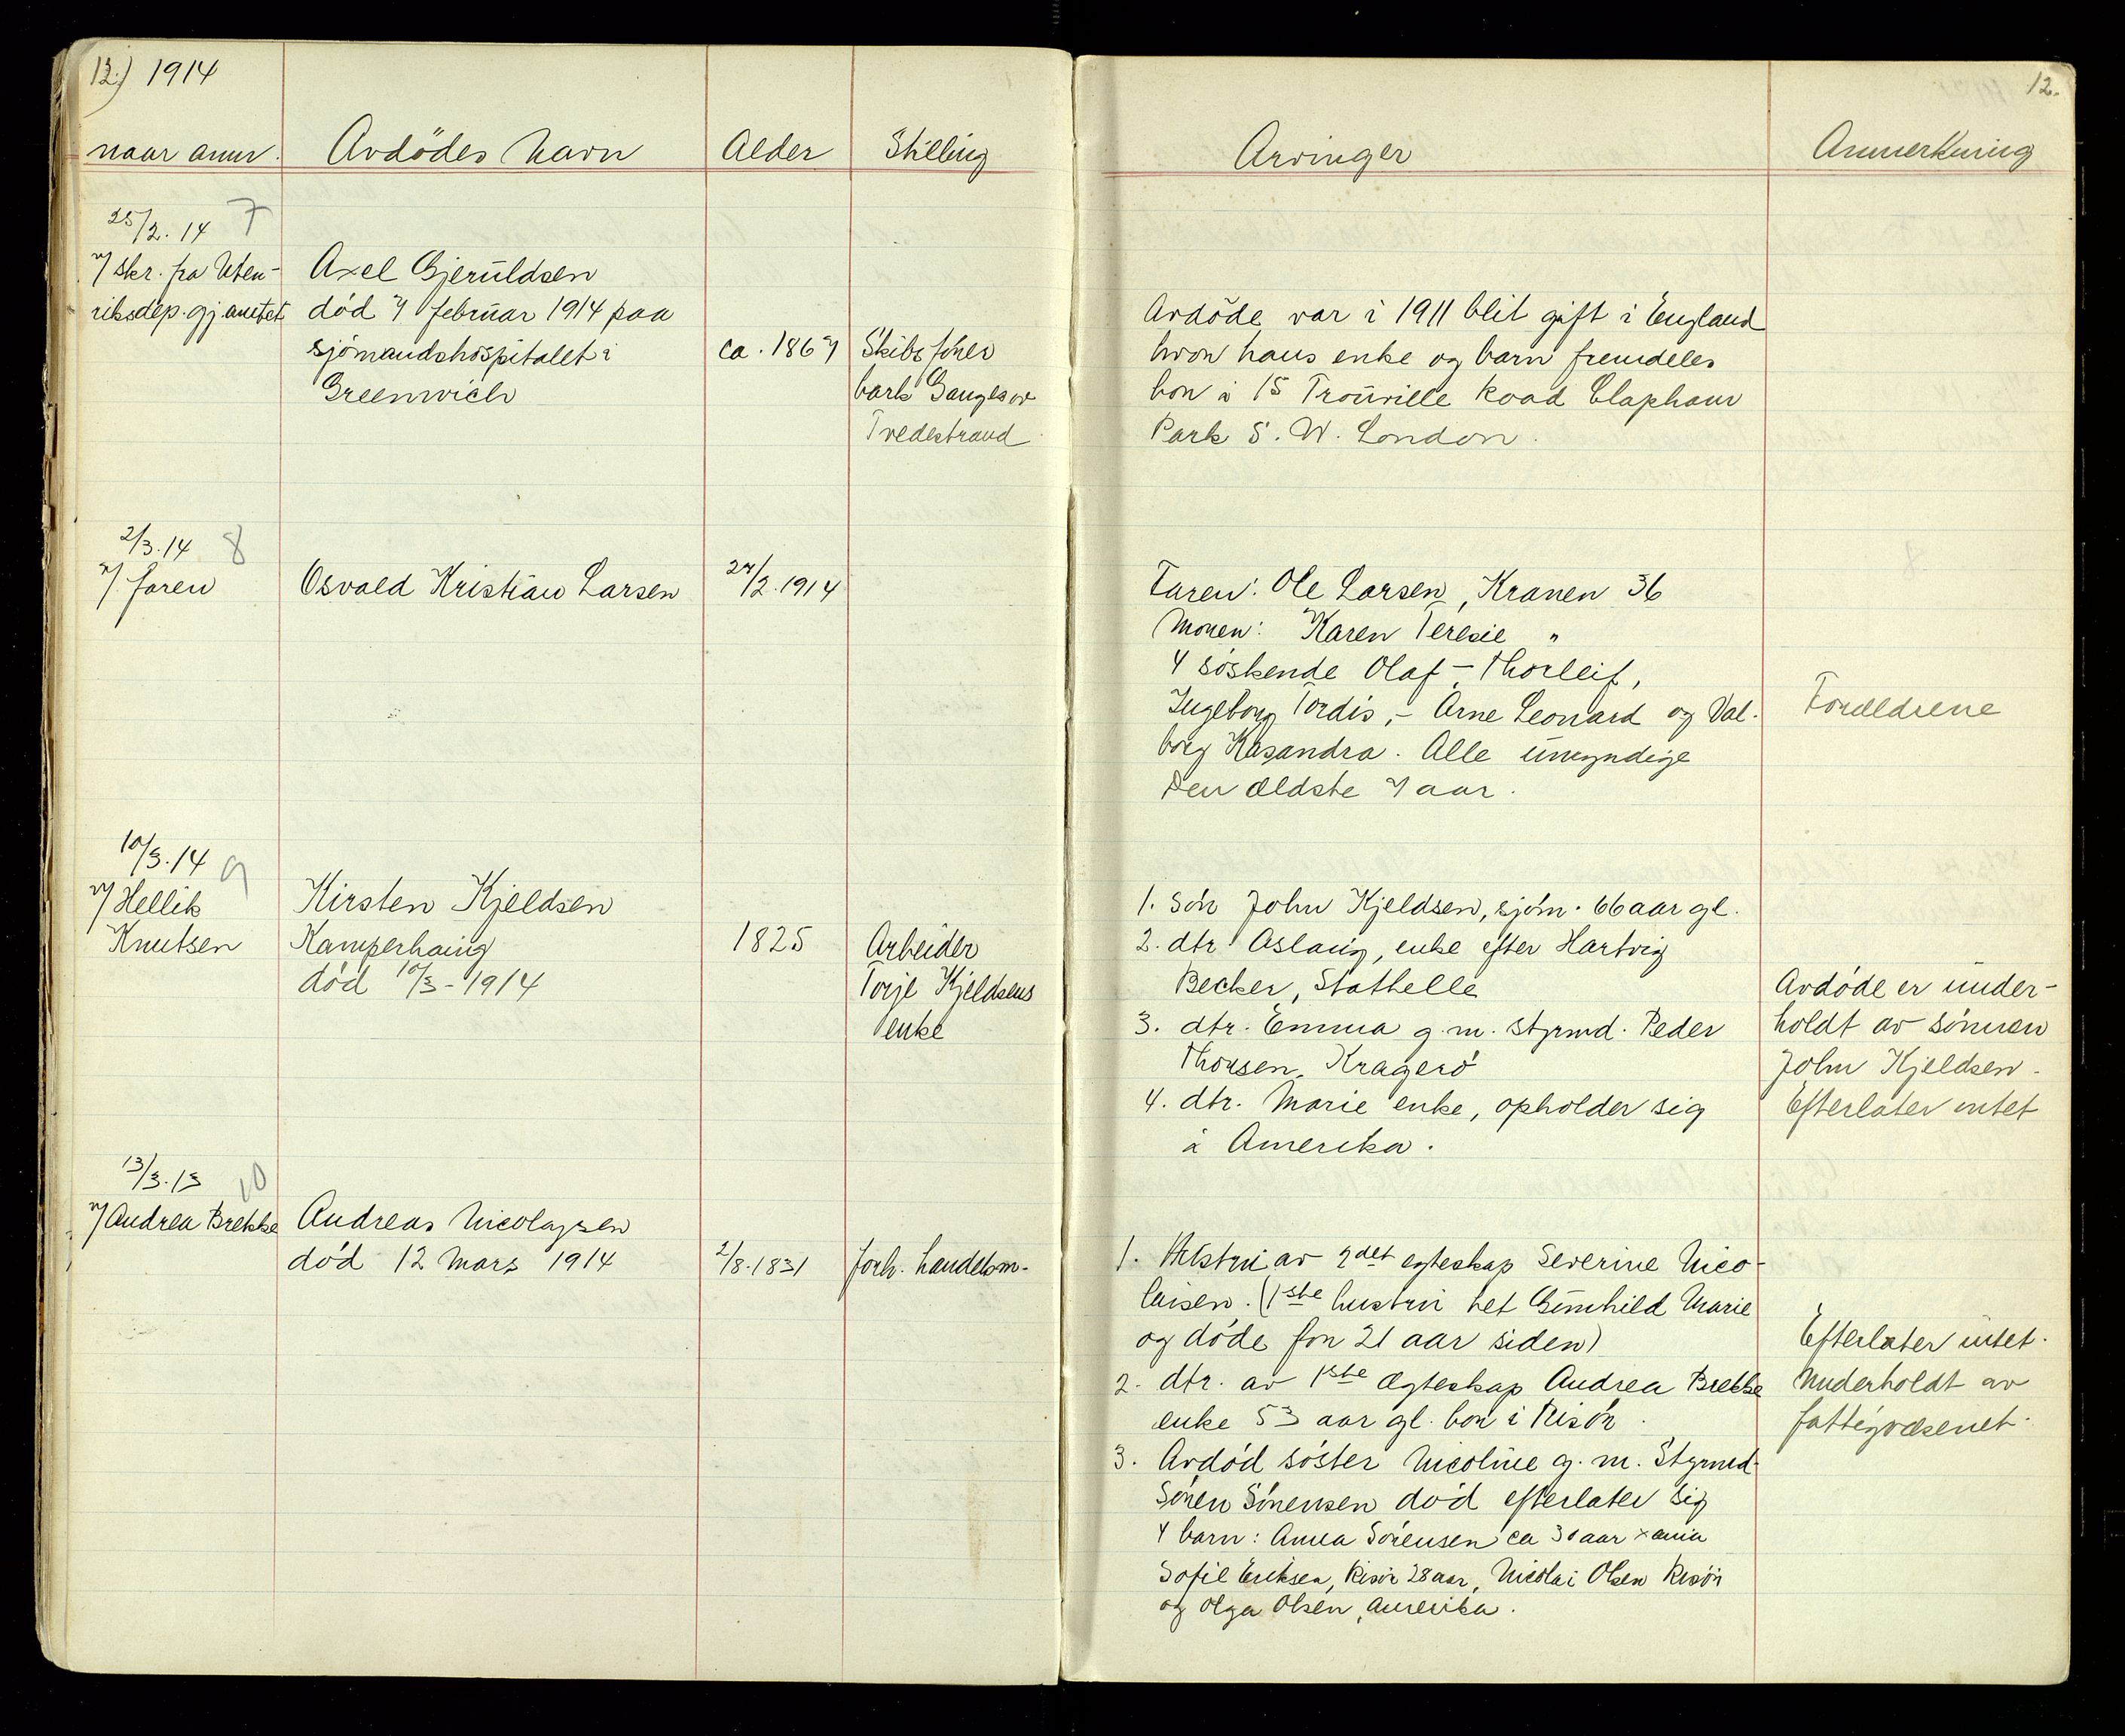 12.) 1914
naar anm. Avdödes Navn Alder Stilling
25/2. 14 7
v/ skr. fra Uten-
riksdep. gj. amtet
Axel Gjeruldsen
död 7 februar 1914 paa
sjömandshospitalet i
Greenwich
ca. 1867
Skibsförer
bark Ganglesv
Tvedestrand
2/3. 14 8
v/ faren
Osvald Kristian Larsen
24/2. 1914
10/3. 14 9
v/ Hellik
Knutsen
Kirsten Kjeldsen
Kamperhaug
död 10/3 - 1914
1825
Arbeider
Torje Kjeldsens
enke
13/3. 13 10
v/ Andrea Brekke
Andreas Nicolaysen
död 12 Mars 1914
2/8. 1831
forh. handelsm.
12.
Arvinger Anmerkning
Avdöde var i 1911 blit gift i England
hvor hans enke og barn fremdeles
bor i 15 Trouville Road Clapham
Park S. W. London.
Faren: Ole Larsen, Kranen 36
Moren: Karen Teresie "
4 söskende Olaf - Thorleif,
Ingeborg Tordis, - Arne Leonard og Val-
borg Kasandra. Alle umyndige
Den ældste 7 aar.
Forældrene
1. Sön John Kjeldsen, sjöm. 66 aar gl.
2. dtr Aslaug, enke efter Hartvig
Becker, Stathelle
3. dtr. Emma g. m. styrmd. Peder
Thorsen, Kragerö
4. dtr. Marie enke, opholder sig
i Amerika.
Avdöde er under-
holdt av sönnen
John Kjeldsen.
Efterlater intet
1. Hustru av 2det egteskap Severine Nico-
laisen. (1ste hustru het Gunhild Marie
og döde for 21 aar siden)
2. dtr. av 1ste Ægteskap Andrea Brekke
enke 53 aar gl. bor i Risör.
3. Avdöd söster Nicoline g. m. Styrmd.
Sören Sörensen död efterlater sig
4 barn: Anna Sörensen ca 30 aar Xania
Sofie Eriksen, Risör 28 aar, Nicolai Olsen Risör
og Olga Olsen, Amerika.
Efterlater intet.
Underholdt av
fattigvæsenet.